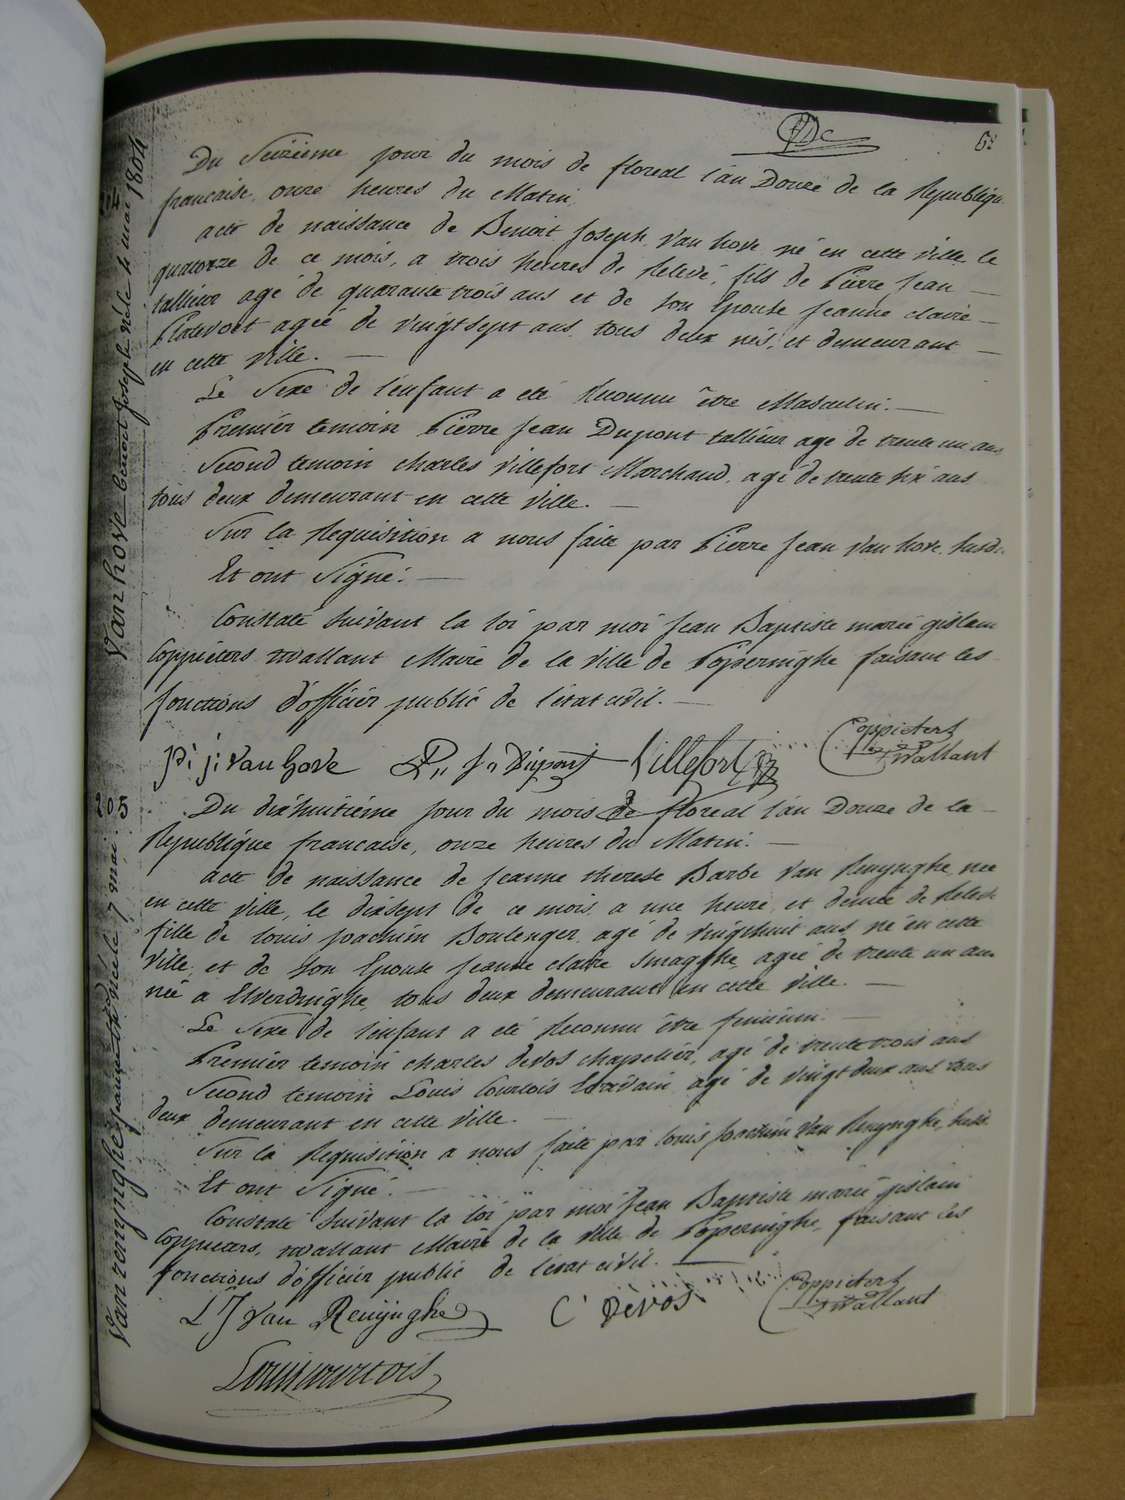 Du Seizième jour du mois de floreal l'an Douze de la Republiqu
francaise, onze heures du Matin.
acte de naissance de Benoit Joseph Van hove né en cette ville le
quatorze de ce mois, a trois heures de Relevé, fils de Pierre Jean
tallieur agé de quarante trois ans et de son Epouse Jeanne Claire
agée de vingt sept ans, tous deux nés, et demeurant
en cette Ville.
Le Sexe de l'enfant a eté Reconnu être Masculin.
Premiér temoin Pierre Jean Dupont tallieur agé de trente un ans
Second temoin Charles Villefort Marchand, agé de trente six ans
tous deux demeurant en cette ville.
Sur la Requisition a nous faite par Pierre Jean Van hove, susd.
Et ont Signé.
Constaté suivant la loi par moi Jean Baptiste marie gislain
Coppieters wallant Maire de la Ville de Poperinghe faisant les
fonctions d'officiér public de l'état civil.
pi ji Van hove Pre Jn Dupont Villefort Coppieters
wallant
204
Van hove benoit Joseph né le 4 mai 1804
205
Du dixhuitiéme jour du mois de floreal l'an Douze de la
Republique francaise, onze heures du Matin.
acte de naissance de Jeanne therese Barbe Van Reuynghe, née
en cette ville, le dixsept de ce mois a une heure et demie de Relevé
fille de louis Joachim Boulenger agé de vingthuit ans, né en cette
Ville, et de son Epouse Jeanne Claire Smagghe, agée de trente un an
née a Elverdinghe, tous deux demeurant en cette ville.
Le Sexe de l'enfant a eté Reconnu être feminin.
Premiér temoin Charles devos chapelier, agé de trente trois ans
Second temoin Louis Courtois Ecrivain agé de vingt deux ans tous
deux demeurant en cette Ville.
Sur la Requisition a nous faite par louis Joachim Van Reuynghe, susd.
Et ont Signé.
Constaté suivant la loi par moi Jean Baptiste marie gislain
Coppieters, wallant Maire de la Ville de Poperinghe, faisant les
fonctions d'officiér public de l'état civil.
L J Van Reuÿnghe C Dévos Coppieters
wallant
Louis courtois
Van reuynghe née le 7 mai